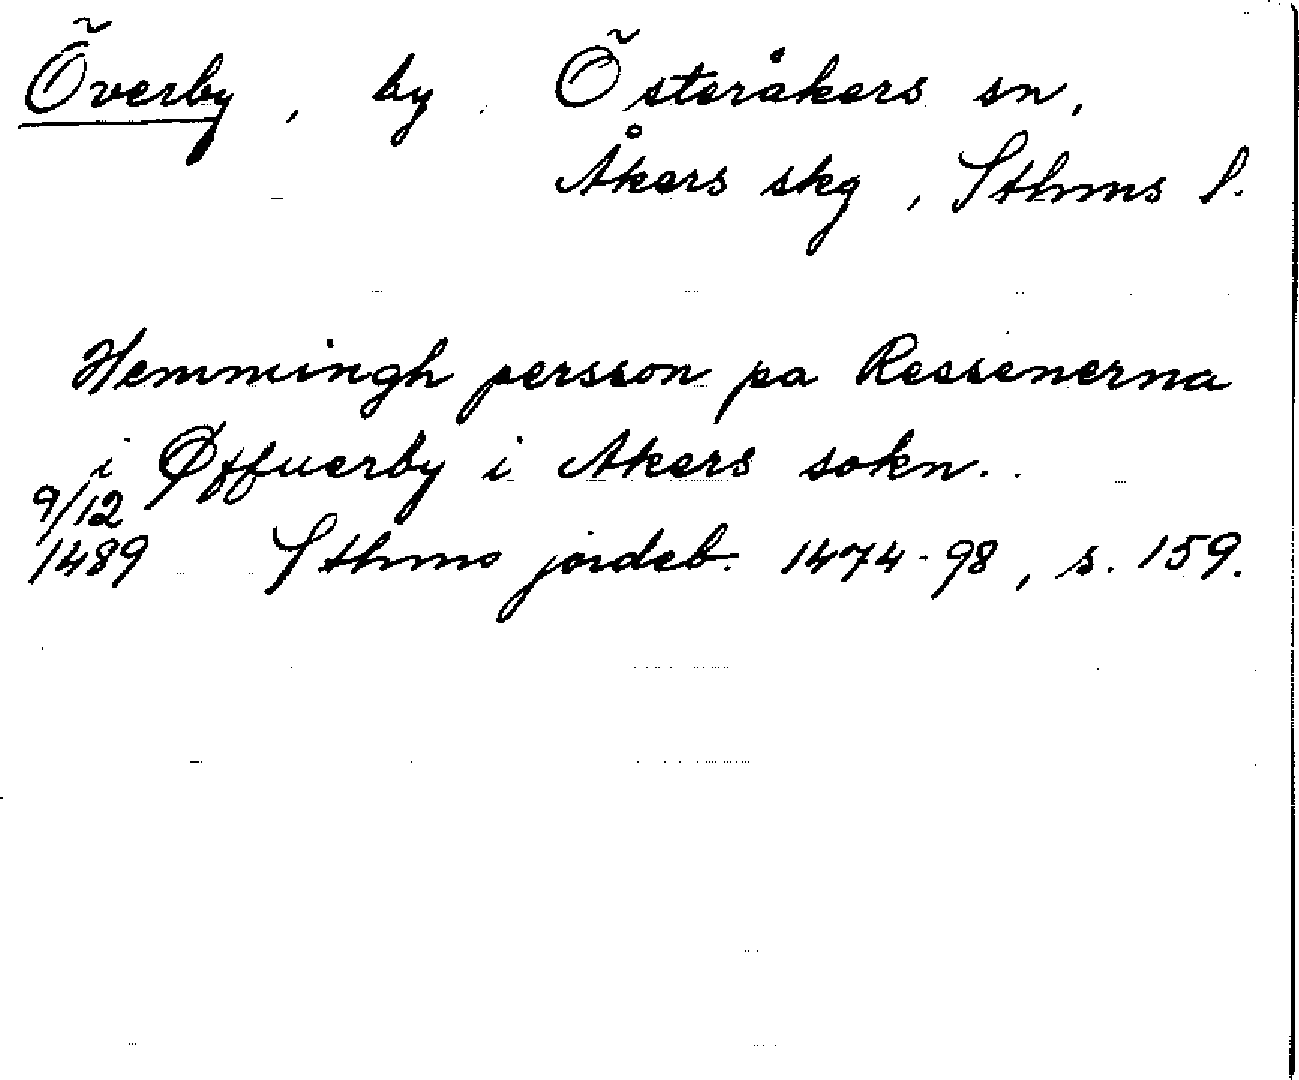 Överby, by. Österåkers sn,
Åkers skg, Sthms l.
Hemmingh persson pa Ressenerna
i Øffuerby i Akers sokn.
9/12
1489 Sthms jordeb. 1474-98, s. 159.